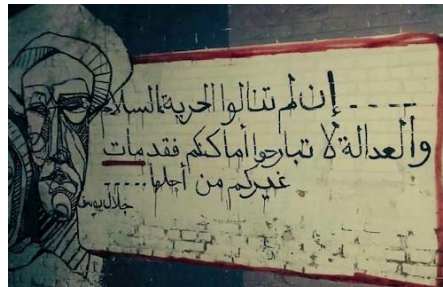 .... إن لم تنالوا الحرية السلام
والعدالة لا تبارحوا أماكنكم فقد مات
غيركم من أجلها .....
جلال يوسف